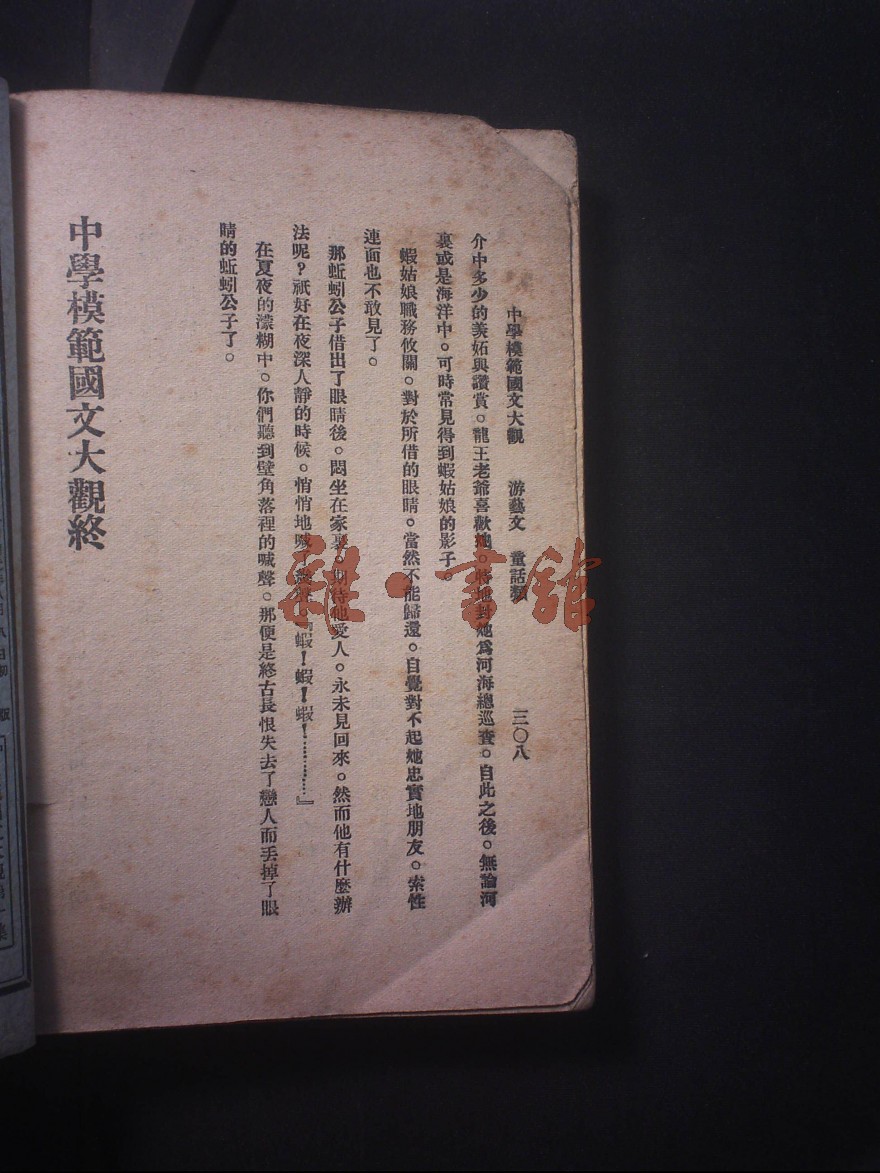 中學模範國文大觀 游藝文 童話類 三〇八
介中多少的羨妬與讚賞。龍王老爺喜歡她。特地對她爲河海總巡查。自此之後。無論河
裏或是海洋中。可時常見得到蝦姑娘的影子
蝦姑娘職務攸關。對於所借的眼睛。當然不能歸還。自覺對不起她忠實地朋友。索性
連面也不敢見了。
那蚯蚓公子借出了眼睛後。悶坐在家裏。期待他愛人。永未見回來。然而他有什麼辦
法呢？祇好在夜深人靜的時候。悄悄地喊了幾聲。『蝦！蝦！蝦！…………』
在夏夜的濛糊中。你們聽到壁角落裡的喊聲。那便是終古長恨失去了戀人而丟掉了眼
睛的蚯蚓公子了。
中學模範國文大觀終
雜·書館